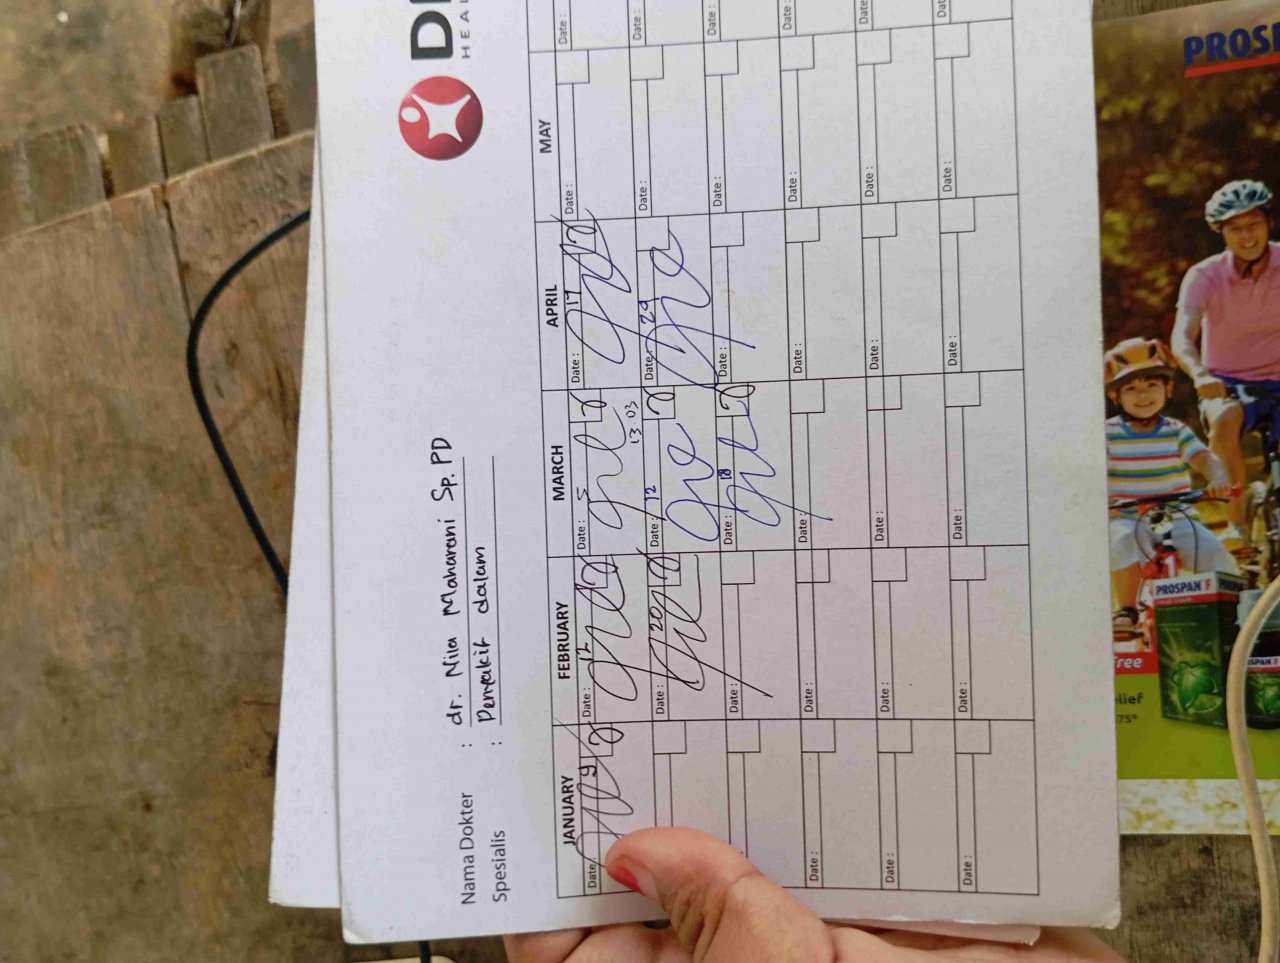 Nama Dokter : dr. Nila Maharani Sp.PD
Spesialis : Penyakit dalam
JANUARY FEBRUARY MARCH APRIL MAY
Date 9 Date : 12 Date : 5 Date : 17 Date : Date :
13.03
Date : 20 Date : 12 Date : 29 Date : Date :
Date : Date : 18 Date : Date : Date :
Date : Date : Date : Date : Date : Date :
Date : Date : Date : Date : Date : Date :
Date : Date : Date : Date : Date : Date :
PROSPAN F